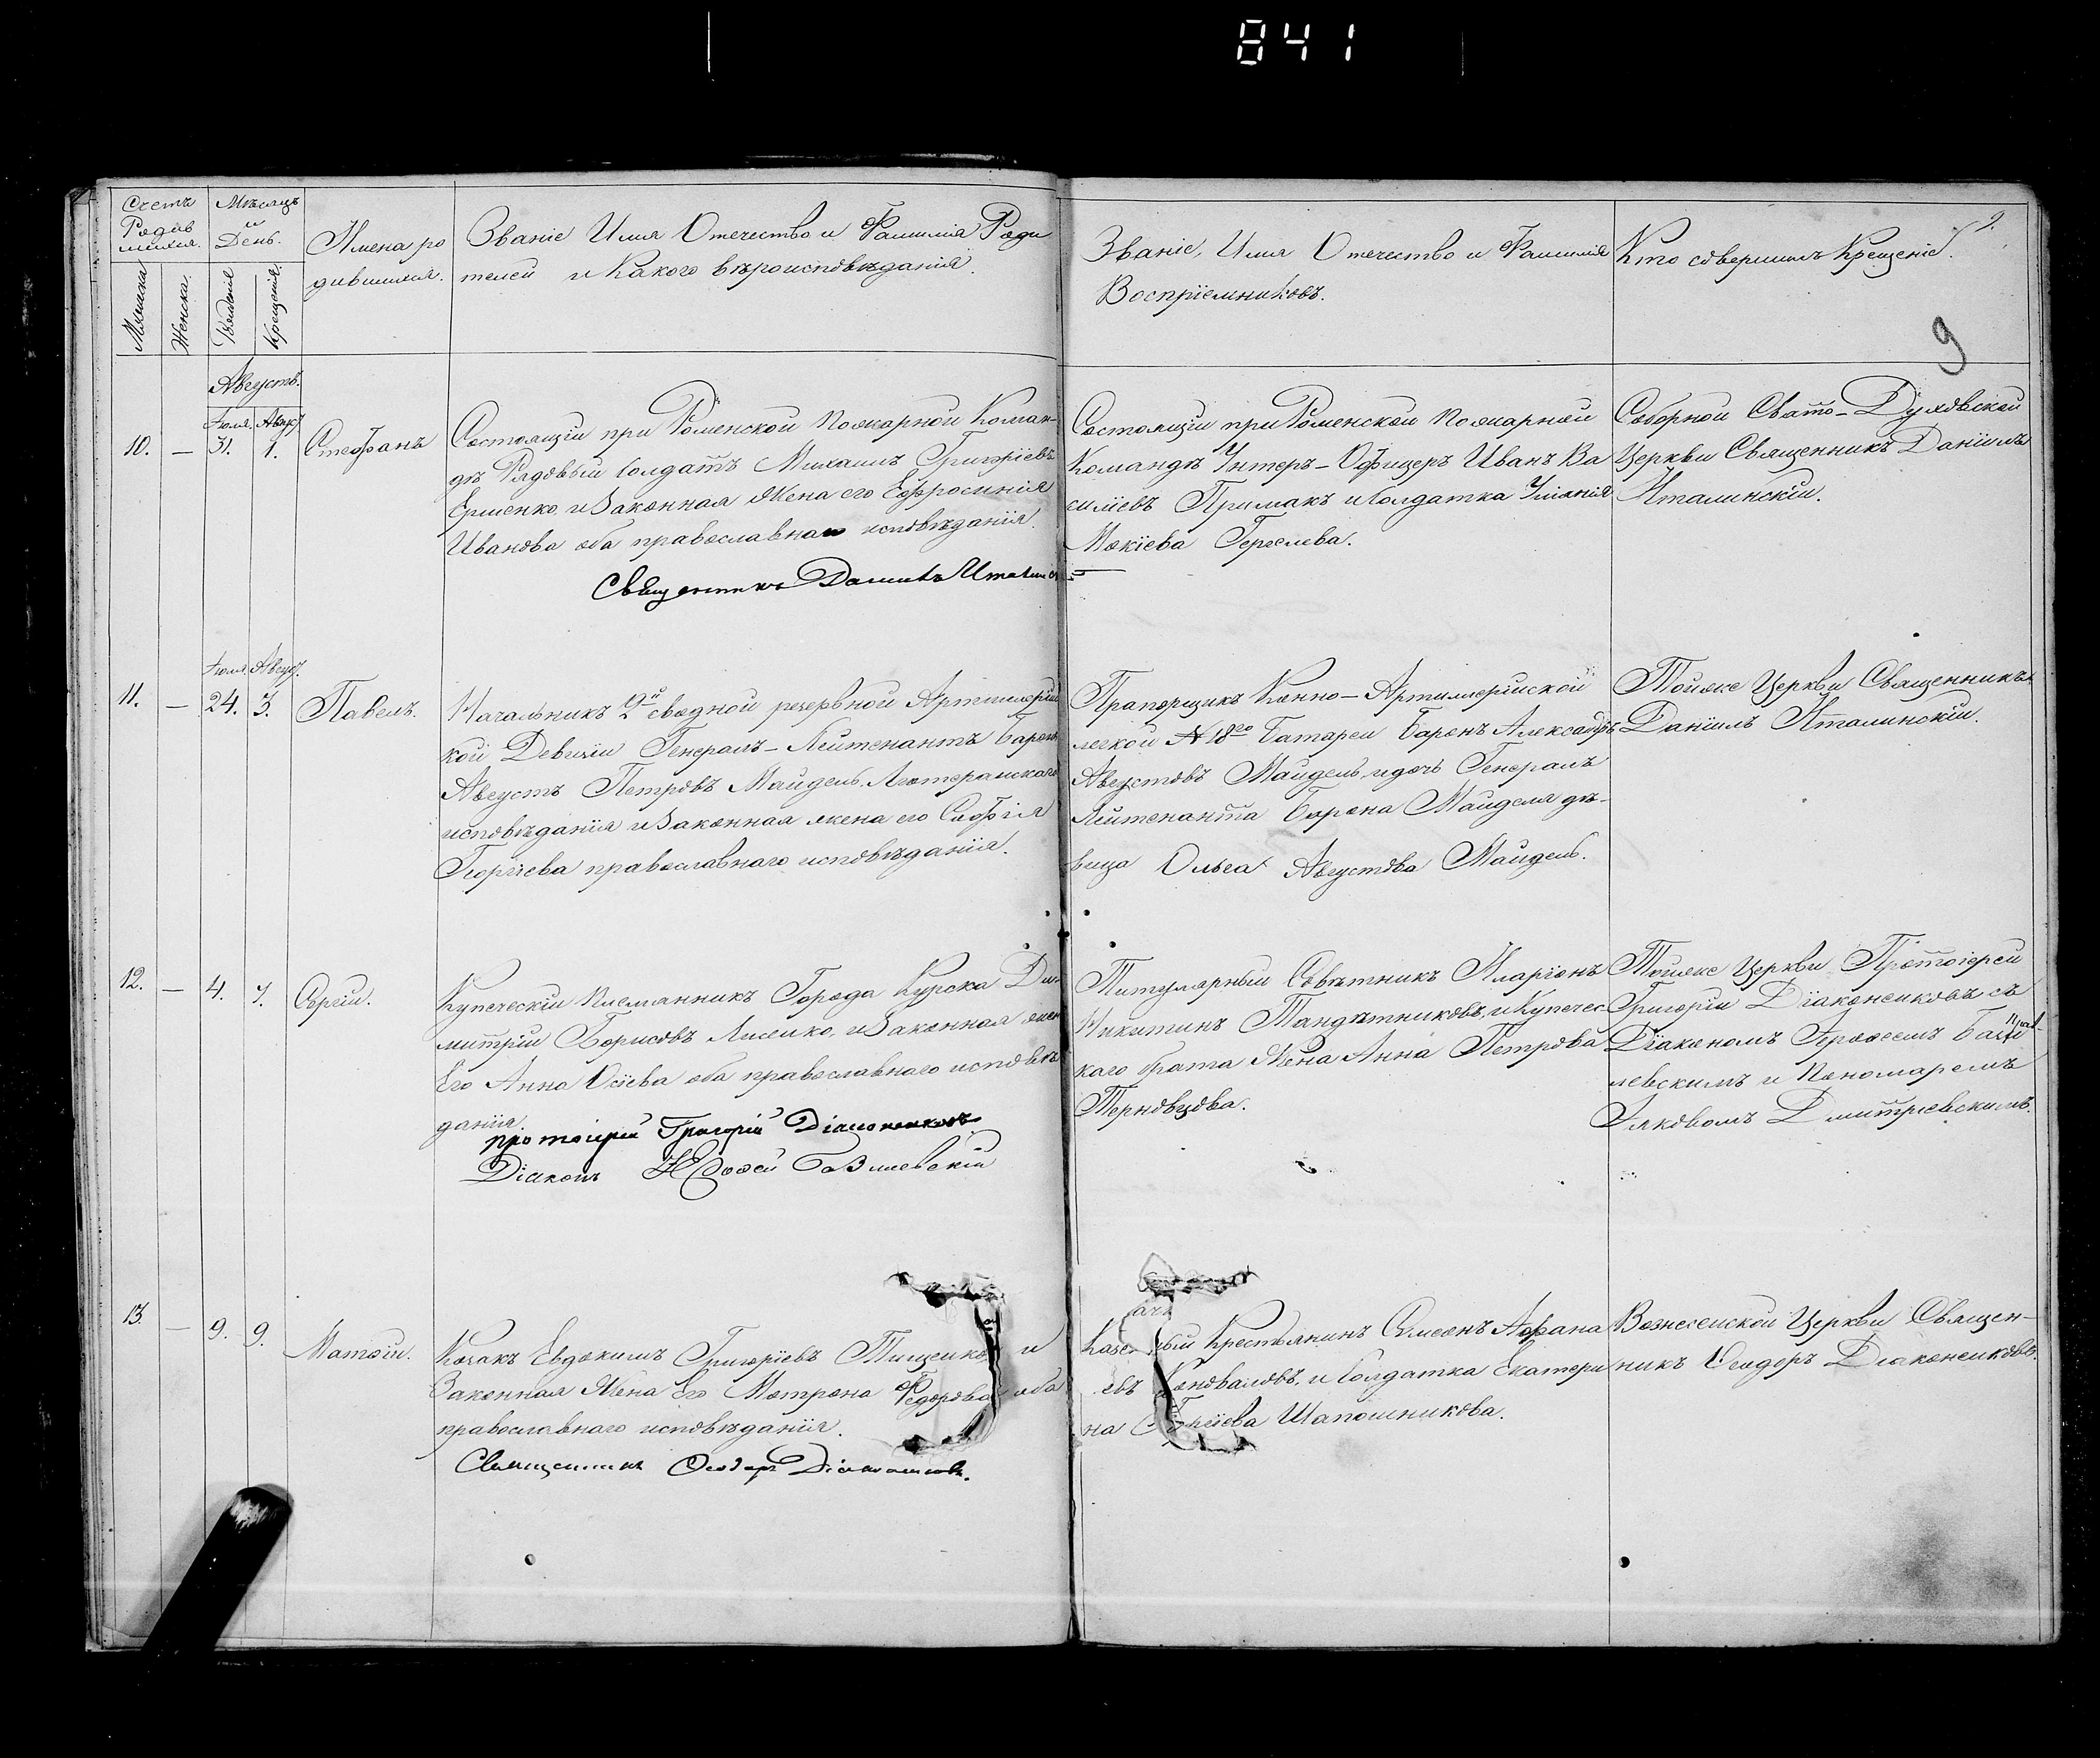 841
Счетъ
Родив
шихся.
Мѣсяцъ
и
День.
Мужска
Женска.
Рожденія
Крещенія.
Имена ро
дившихся.
Званіе Имя Отечество и Фамилія Роди
телей и Какого вѣроисповѣданія.
Званіе, Имя Отечество и Фамилія
Воспріемниковъ.
Кто совершилъ Крещеніе.
9.
9
Августъ.
Іюля Авгус
10. — 31. 1. Стефанъ
Состоящій при Роменской Пожарной Коман-
дѣ Рядовый Солдатъ Михаилъ Григоріевъ
Ерменко, и Законная Жена его Ефросинія
Иванова оба православнаго исповѣданія.
Священникъ Даніилъ Италинск
Состоящій при Роменской Пожарной
Командѣ Унтеръ-Офицеръ Иванъ Ва
силіевъ Примакъ и Солдатка Уліянія
Мокіева Гергелева.
Соборной Свято-Духовской
Церкви Священникъ Даніилъ
Италинскій.
Іюля Август.
11. — 24. 3. Павелъ.
Начальникъ 2й сводной резервной Артиллерійс
кой Девизіи Генералъ-Лейтенантъ Баронъ
Августъ Петровъ Майдель, Лютеранскаго
исповѣданія и Законная жена его Софія
Георгіева православнаго исповѣданія.
Прапорщикъ Конно-Артиллерійской
легкой № 18го Батареи Баронъ Александръ
Августовъ Майдель, и дочь Генералъ
Лейтенанта Барона Майделя дѣ-
вица Ольга Августова Майдель.
Тойже Церкви Священникъ
Даніилъ Италинскій.
12. — 4. 7. Сергій.
Купеческій Племянникъ Города Курска Ди-
митрій Борисовъ Лисенко, и Законная жена
Его Анна Осіева оба православнаго исповѣ
данія.
протоіерей Григорій Діаконенковъ
Діаконъ Іерофей Базилевскій
Титулярный Совѣтникъ Иларіонъ
Никитинъ Тандѣтниковъ, и Купечес
каго брата Жена Анна Петрова
Терновцова.
Тойже Церкви Протоіерей
Григорій Діаконенковъ съ
Діакономъ Герофеемъ Бази
левскимъ и Пономаремъ
Яковомъ Дмитріевскимъ.
13. — 9. 9. Матѳій.
Козакъ Евдокимъ Григоріевъ Тищенко и
Законная Жена Его Матрона Федорова оба
православнаго исповѣданія.
Священникъ Ѳеодоръ Діаконенковъ.
Казен ный Крестьянинъ Симеонъ Афана
евъ Коноваловъ, и Солдатка Екатери
на Шапошникова.
Вознесенской Церкви Священ-
никъ Ѳеодоръ Діаконенковъ.